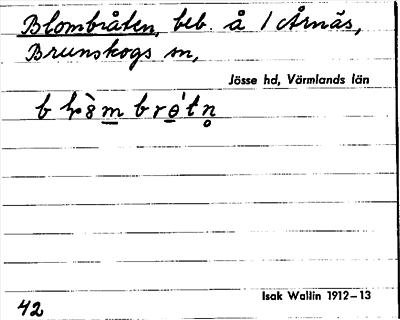 Blombråten, beb. å 1 Årnäs,
Brunskogs sn,
Jösse hd, Värmlands län
Isak Wallin 1912–13
42